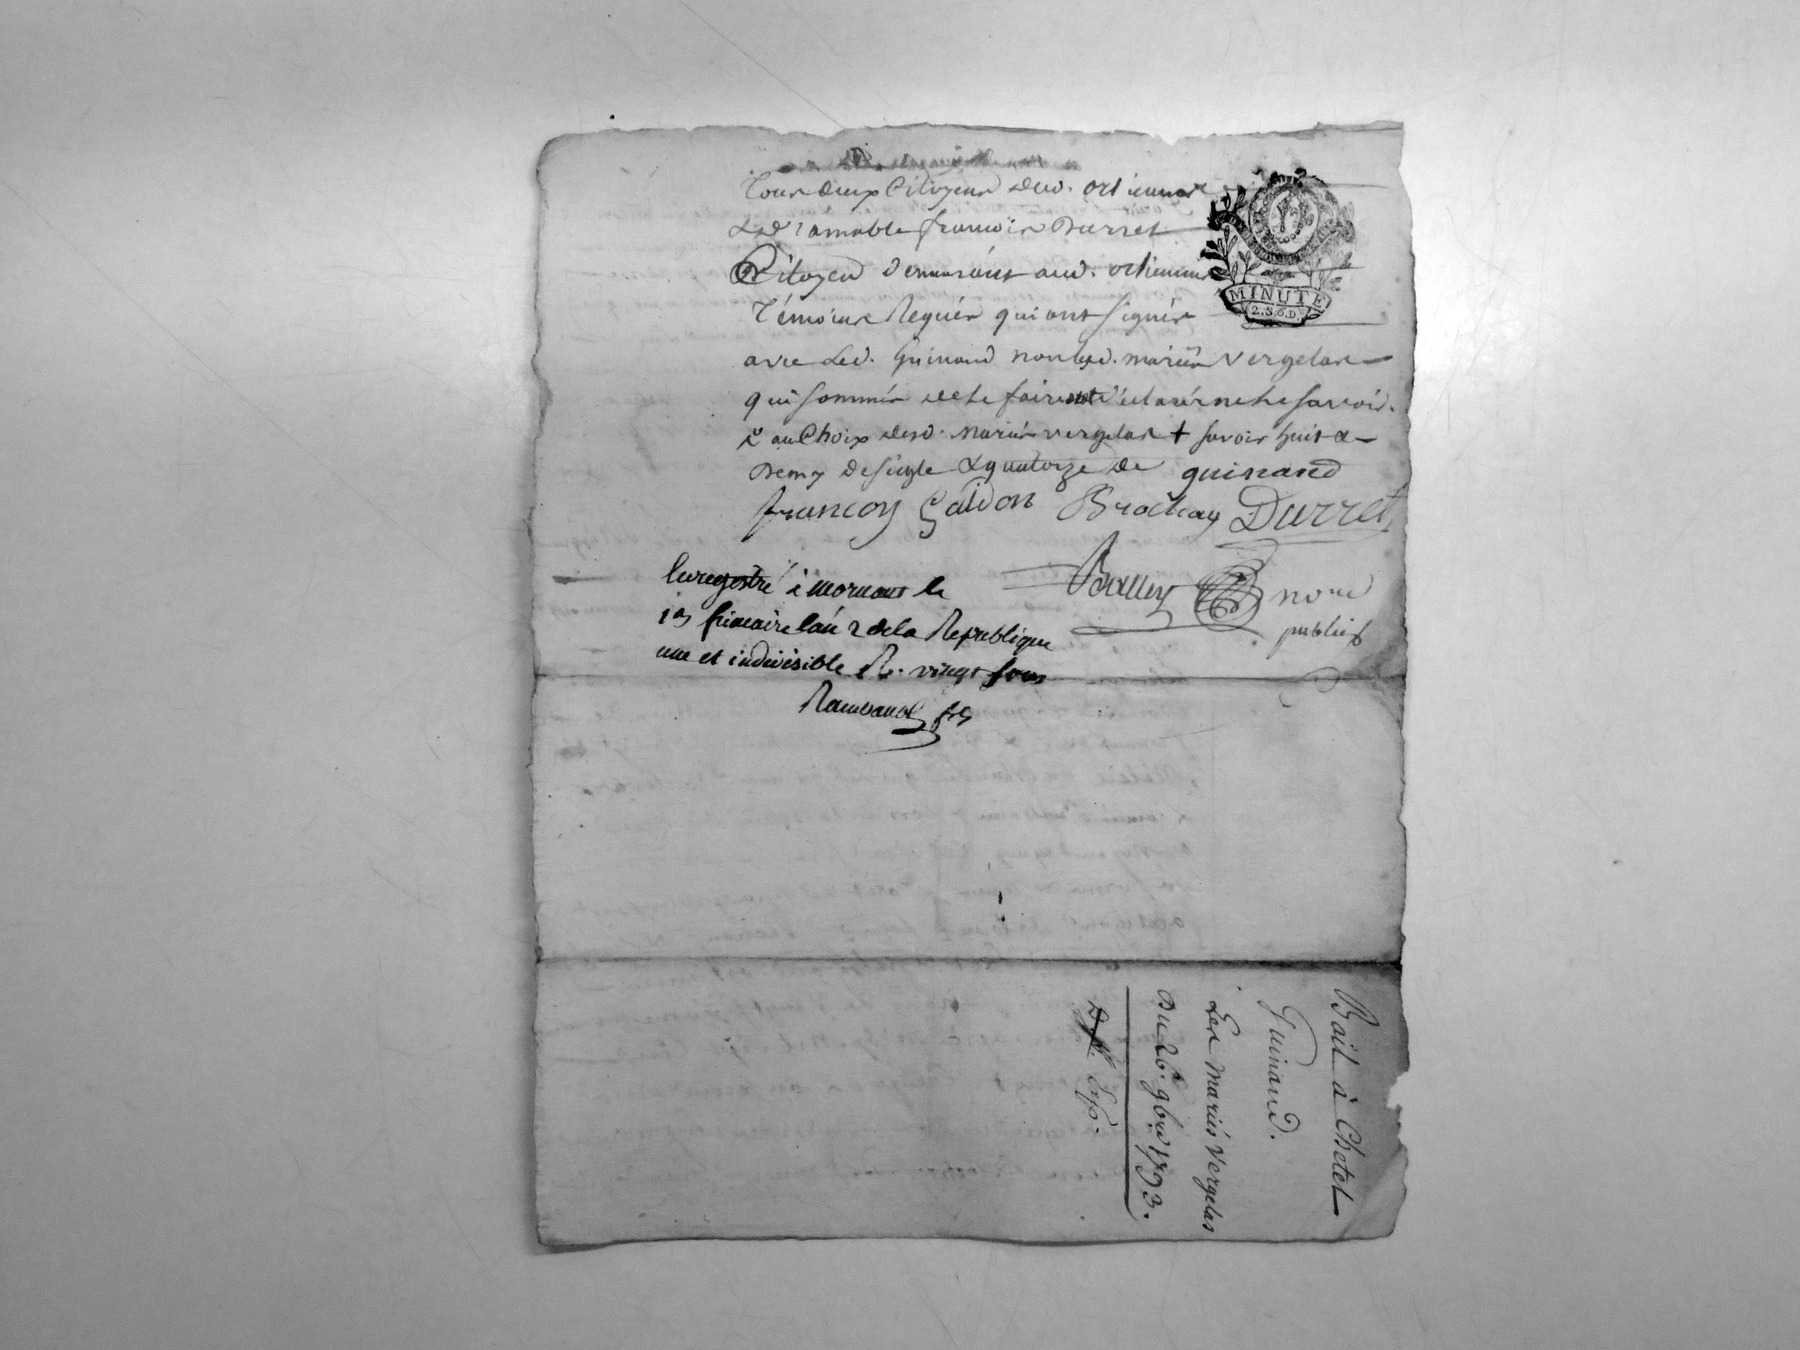 tous deux Citoyens dud. orlienas
& d'amable françois Durret
Citoyen demeurant aud. orlienas
témoins Requis qui ont signés
avec Led. guinand non lesd. mariés vergelas
qui sommés de le faire ont déclaré ne le savoir.
au Choix desd. mariés vergelas + savoir huit &
Demy de seigle & quatorze de guinand
françoy gaidon Brochay Durret
Bailly nore
public
MINUTE
2.S.6.D.
Enregistré à mornant le
frimaire l'an 2 de la Republique
une et indivisible R. vingt sous
Bail à Chetel
Guinand.
Les mariés Vergelas
Du 26. 9bre 1793.
Exp.